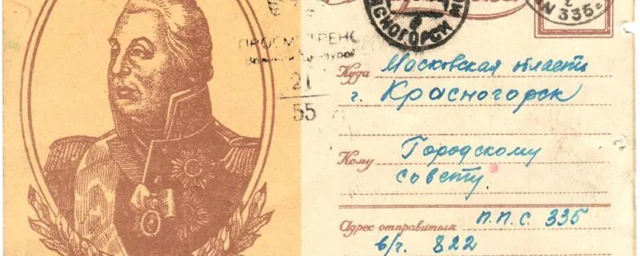 ПРОСМОТРЕНО
21
55
КРАСНОГОРСК
335
Куда Московская область
г. Красногорск
Кому Городскому
совету.
Адрес отправителя П.П.С 335
в/ч. 822